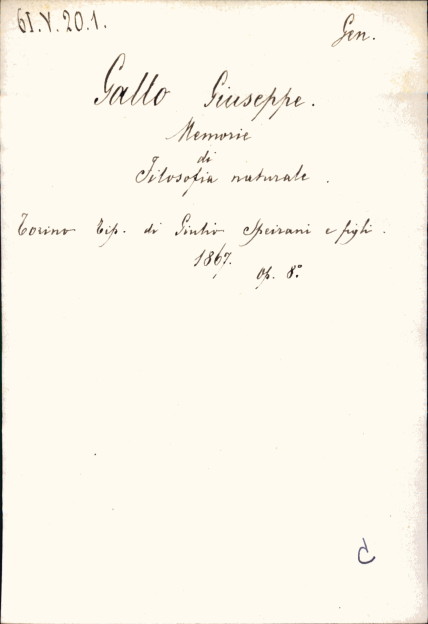 61.V.20.1.
Gen.
Gallo Giuseppe.
Memorie
di
Filosofia naturale.
Torino Tip. di Giulio Speirani e figli.
1867.
op. 8º
C